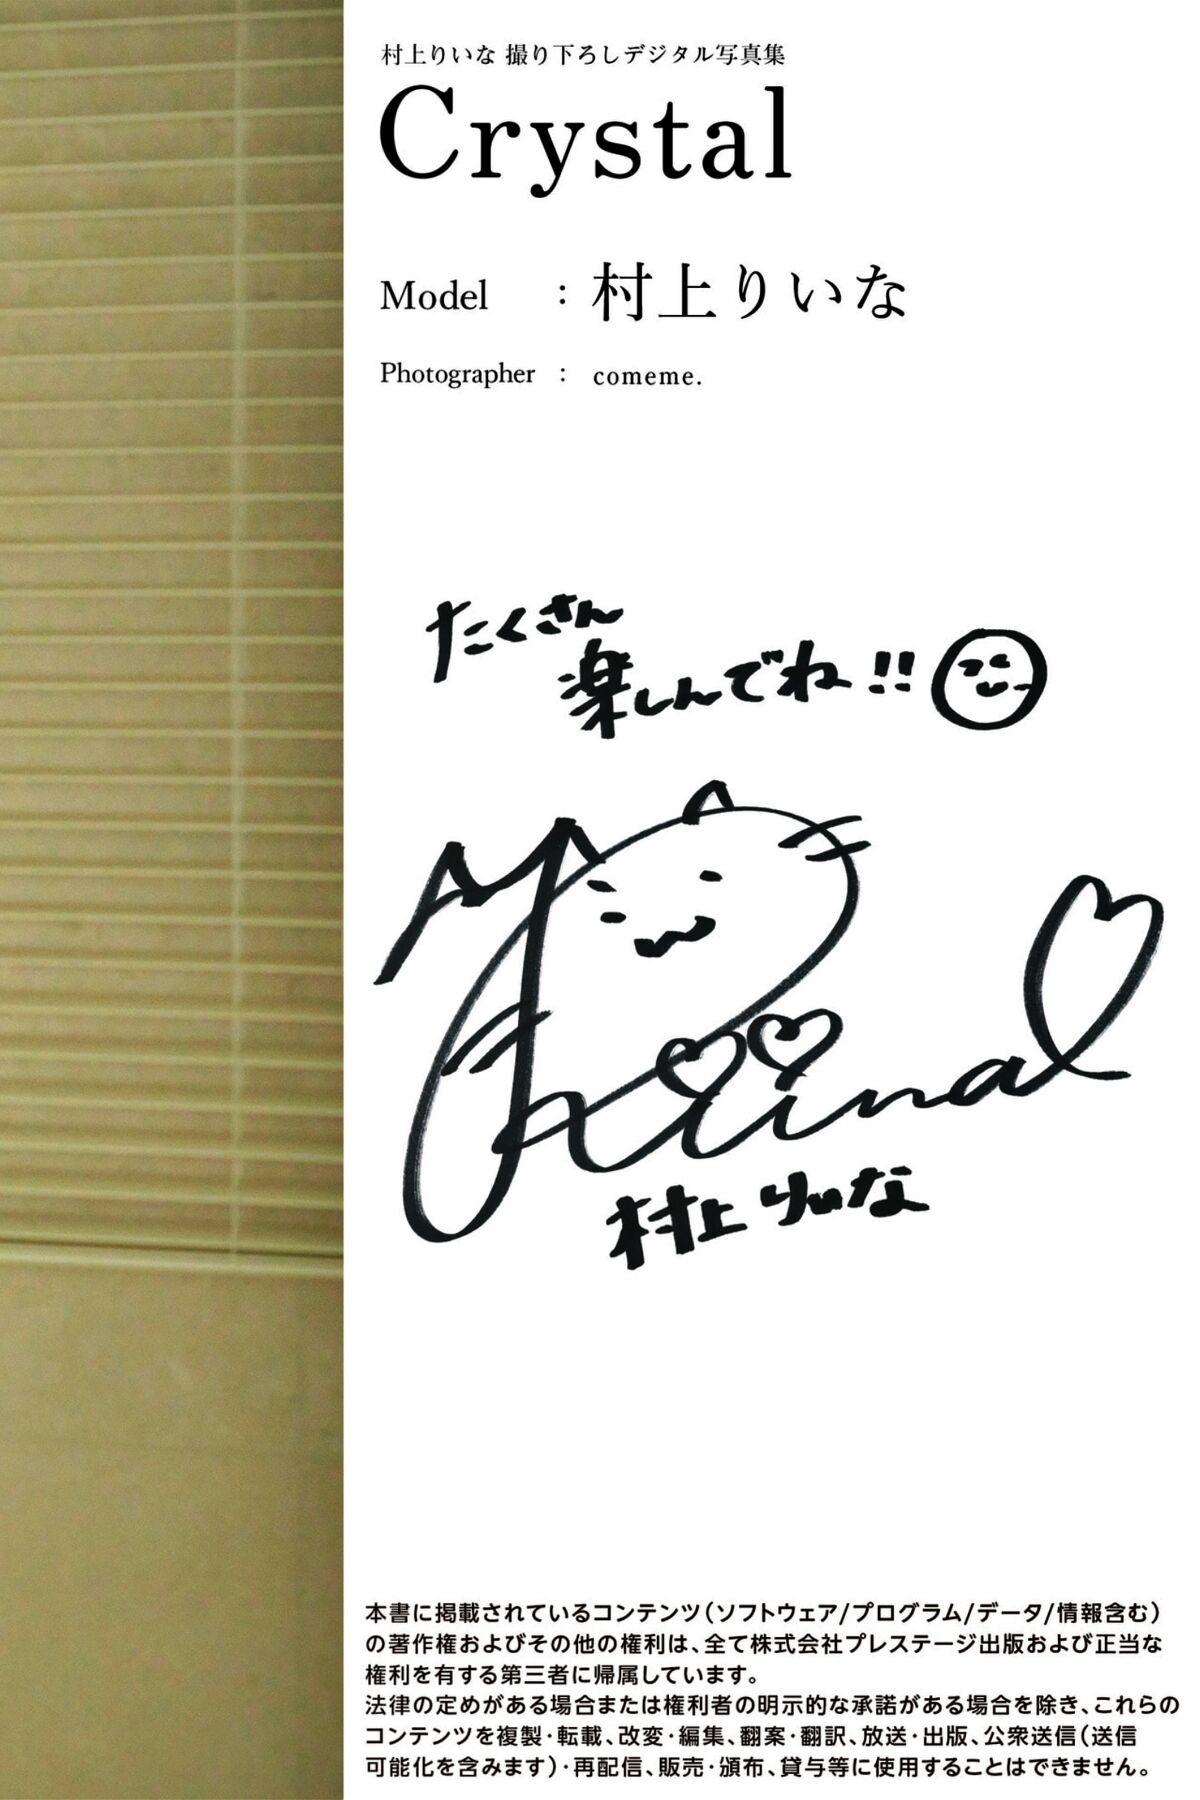 村上りいな 撮り下ろしデジタル写真集
Crystal
Model : 村上りいな
Photographer : comeme.
たくさん
楽しんでね!!
Riina
村上りいな
本書に掲載されているコンテンツ(ソフトウェア/プログラム/データ/情報含む)
の著作権およびその他の権利は、全て株式会社プレステージ出版および正当な
権利を有する第三者に帰属しています。
法律の定めがある場合または権利者の明示的な承諾がある場合を除き、これらの
コンテンツを複製・転載、改変・編集、翻案・翻訳、放送・出版、公衆送信(送信
可能化を含みます)・再配信、販売・頒布、貸与等に使用することはできません。